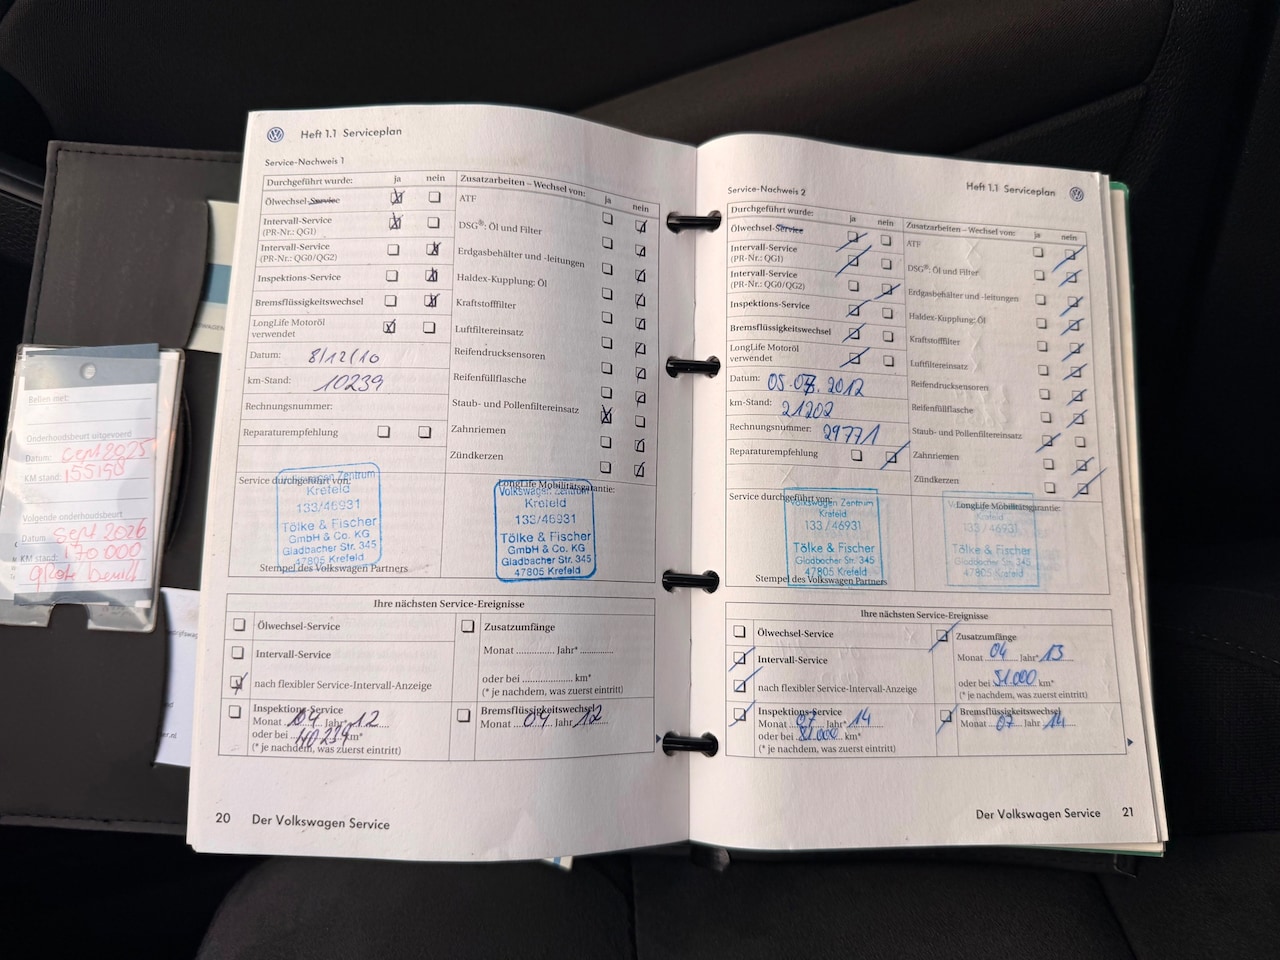 Heft 1.1 Serviceplan
Service-Nachweis 1
Durchgeführt wurde: ja nein
Ölwechsel-Service
Intervall-Service
(PR-Nr.: QG1)
Intervall-Service
(PR-Nr.: QG0/QG2)
Inspektions-Service
Bremsflüssigkeitswechsel
LongLife Motoröl
verwendet
Datum: 8/12/10
km-Stand: 10239
Rechnungsnummer:
Reparaturempfehlung
Zusatzarbeiten – Wechsel von: ja nein
ATF
DSG®: Öl und Filter
Erdgasbehälter und -leitungen
Haldex-Kupplung: Öl
Kraftstofffilter
Luftfiltereinsatz
Reifendrucksensoren
Reifenfüllflasche
Staub- und Pollenfiltereinsatz
Zahnriemen
Zündkerzen
Service durchgeführt von:
Volkswagen Zentrum
Krefeld
133/46931
Tölke & Fischer
GmbH & Co. KG
Gladbacher Str. 345
47805 Krefeld
Stempel des Volkswagen Partners
LongLife Mobilitätsgarantie:
Volkswagen Zentrum
Krefeld
133/46931
Tölke & Fischer
GmbH & Co. KG
Gladbacher Str. 345
47805 Krefeld
Ihre nächsten Service-Ereignisse
Ölwechsel-Service
Intervall-Service
nach flexibler Service-Intervall-Anzeige
Inspektions-Service
Monat 04 Jahr* 12
oder bei km*
(* je nachdem, was zuerst eintritt)
Zusatzumfänge
Monat Jahr*
oder bei km*
(* je nachdem, was zuerst eintritt)
Bremsflüssigkeitswechsel
Monat 04 Jahr 12
20 Der Volkswagen Service
Heft 1.1 Serviceplan
Service-Nachweis 2
Durchgeführt wurde: ja nein
Ölwechsel-Service
Intervall-Service
(PR-Nr.: QG1)
Intervall-Service
(PR-Nr.: QG0/QG2)
Inspektions-Service
Bremsflüssigkeitswechsel
LongLife Motoröl
verwendet
Datum: 05.07.2012
km-Stand: 21202
Rechnungsnummer: 29771
Reparaturempfehlung
Zusatzarbeiten – Wechsel von: ja nein
ATF
DSG®: Öl und Filter
Erdgasbehälter und -leitungen
Haldex-Kupplung: Öl
Kraftstofffilter
Luftfiltereinsatz
Reifendrucksensoren
Reifenfüllflasche
Staub- und Pollenfiltereinsatz
Zahnriemen
Zündkerzen
Service durchgeführt von:
Volkswagen Zentrum
Krefeld
133/46931
Tölke & Fischer
GmbH & Co. KG
Gladbacher Str. 345
47805 Krefeld
Stempel des Volkswagen Partners
LongLife Mobilitätsgarantie:
Krefeld
133/46931
Tölke & Fischer
GmbH & Co. KG
Gladbacher Str. 345
47805 Krefeld
Ihre nächsten Service-Ereignisse
Ölwechsel-Service
Intervall-Service
nach flexibler Service-Intervall-Anzeige
Inspektions-Service
Monat 07 Jahr* 14
oder bei km*
(* je nachdem, was zuerst eintritt)
Zusatzumfänge
Monat 04 Jahr* 13
oder bei 51.000 km*
(* je nachdem, was zuerst eintritt)
Bremsflüssigkeitswechsel
Monat 07 Jahr 14
Der Volkswagen Service 21
Bellen met:
Onderhoudsbeurt uitgevoerd
Datum: sept 2025
KM stand: 155198
Volgende onderhoudsbeurt
Datum: Sept 2026
KM stand: 170 000
grote beurt